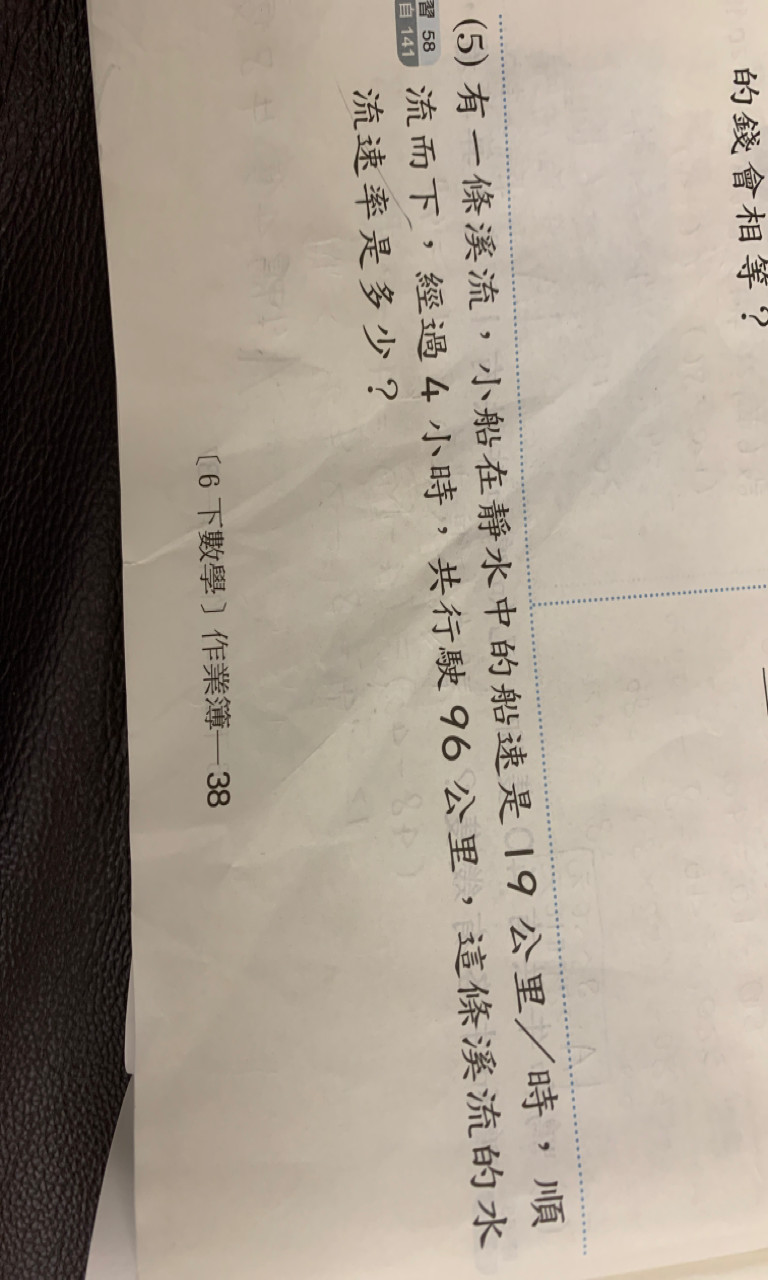 的錢會相等？
(5)有一條溪流，小船在靜水中的船速是19公里／時，順
習 58
自 141
流而下，經過4小時，共行駛96公里，這條溪流的水
流速率是多少？
〔6下數學〕作業簿—38